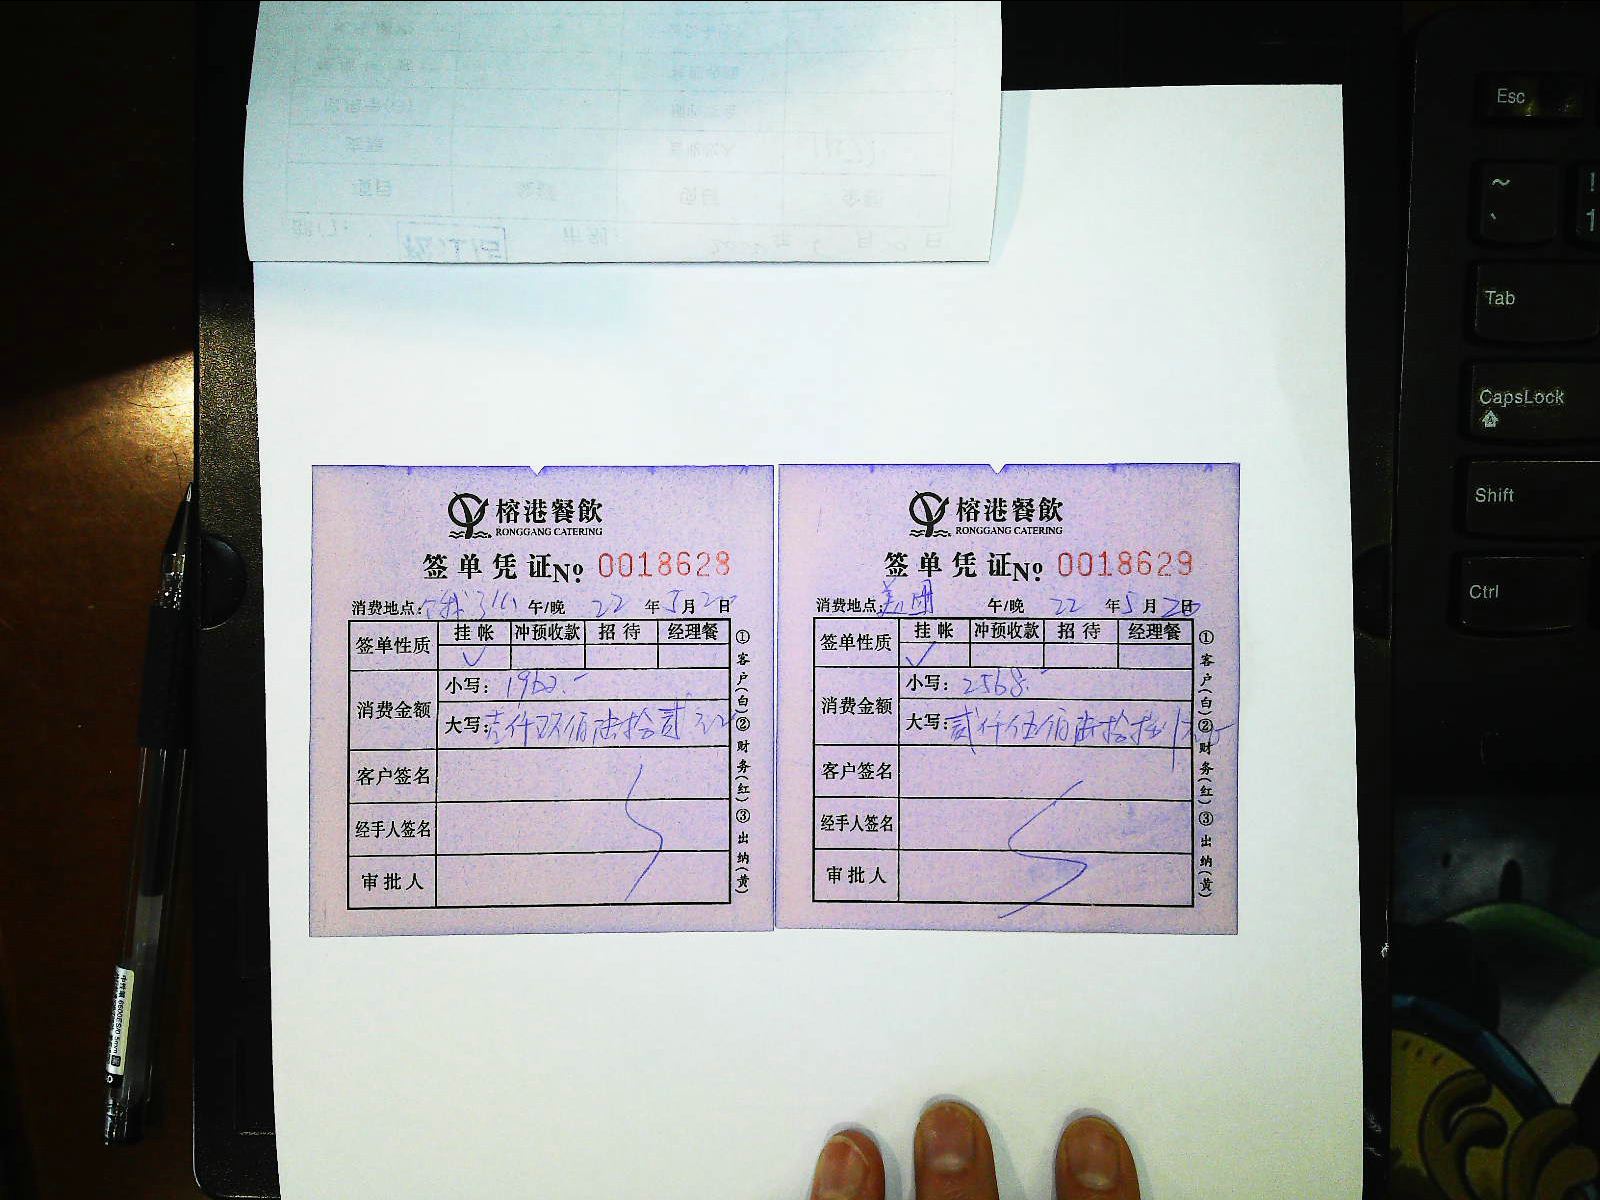 榕港餐飲
RONGGANG CATERING
签单凭证No 0018628
消费地点: 饿了么 午/晚 22年5月20日
签单性质 挂帐 冲预收款 招待 经理餐
✓
消费金额 小写: 1962.-
大写: 壹仟玖佰陆拾贰元
客户签名
经手人签名
审批人
①客户(白)②财务(红)③出纳(黄)
榕港餐飲
RONGGANG CATERING
签单凭证No 0018629
消费地点: 美团 午/晚 22年5月20日
签单性质 挂帐 冲预收款 招待 经理餐
✓
消费金额 小写: 2568.-
大写: 贰仟伍佰陆拾捌元
客户签名
经手人签名
审批人
①客户(白)②财务(红)③出纳(黄)
Esc
~
、
!
1
Tab
CapsLock
Shift
Ctrl